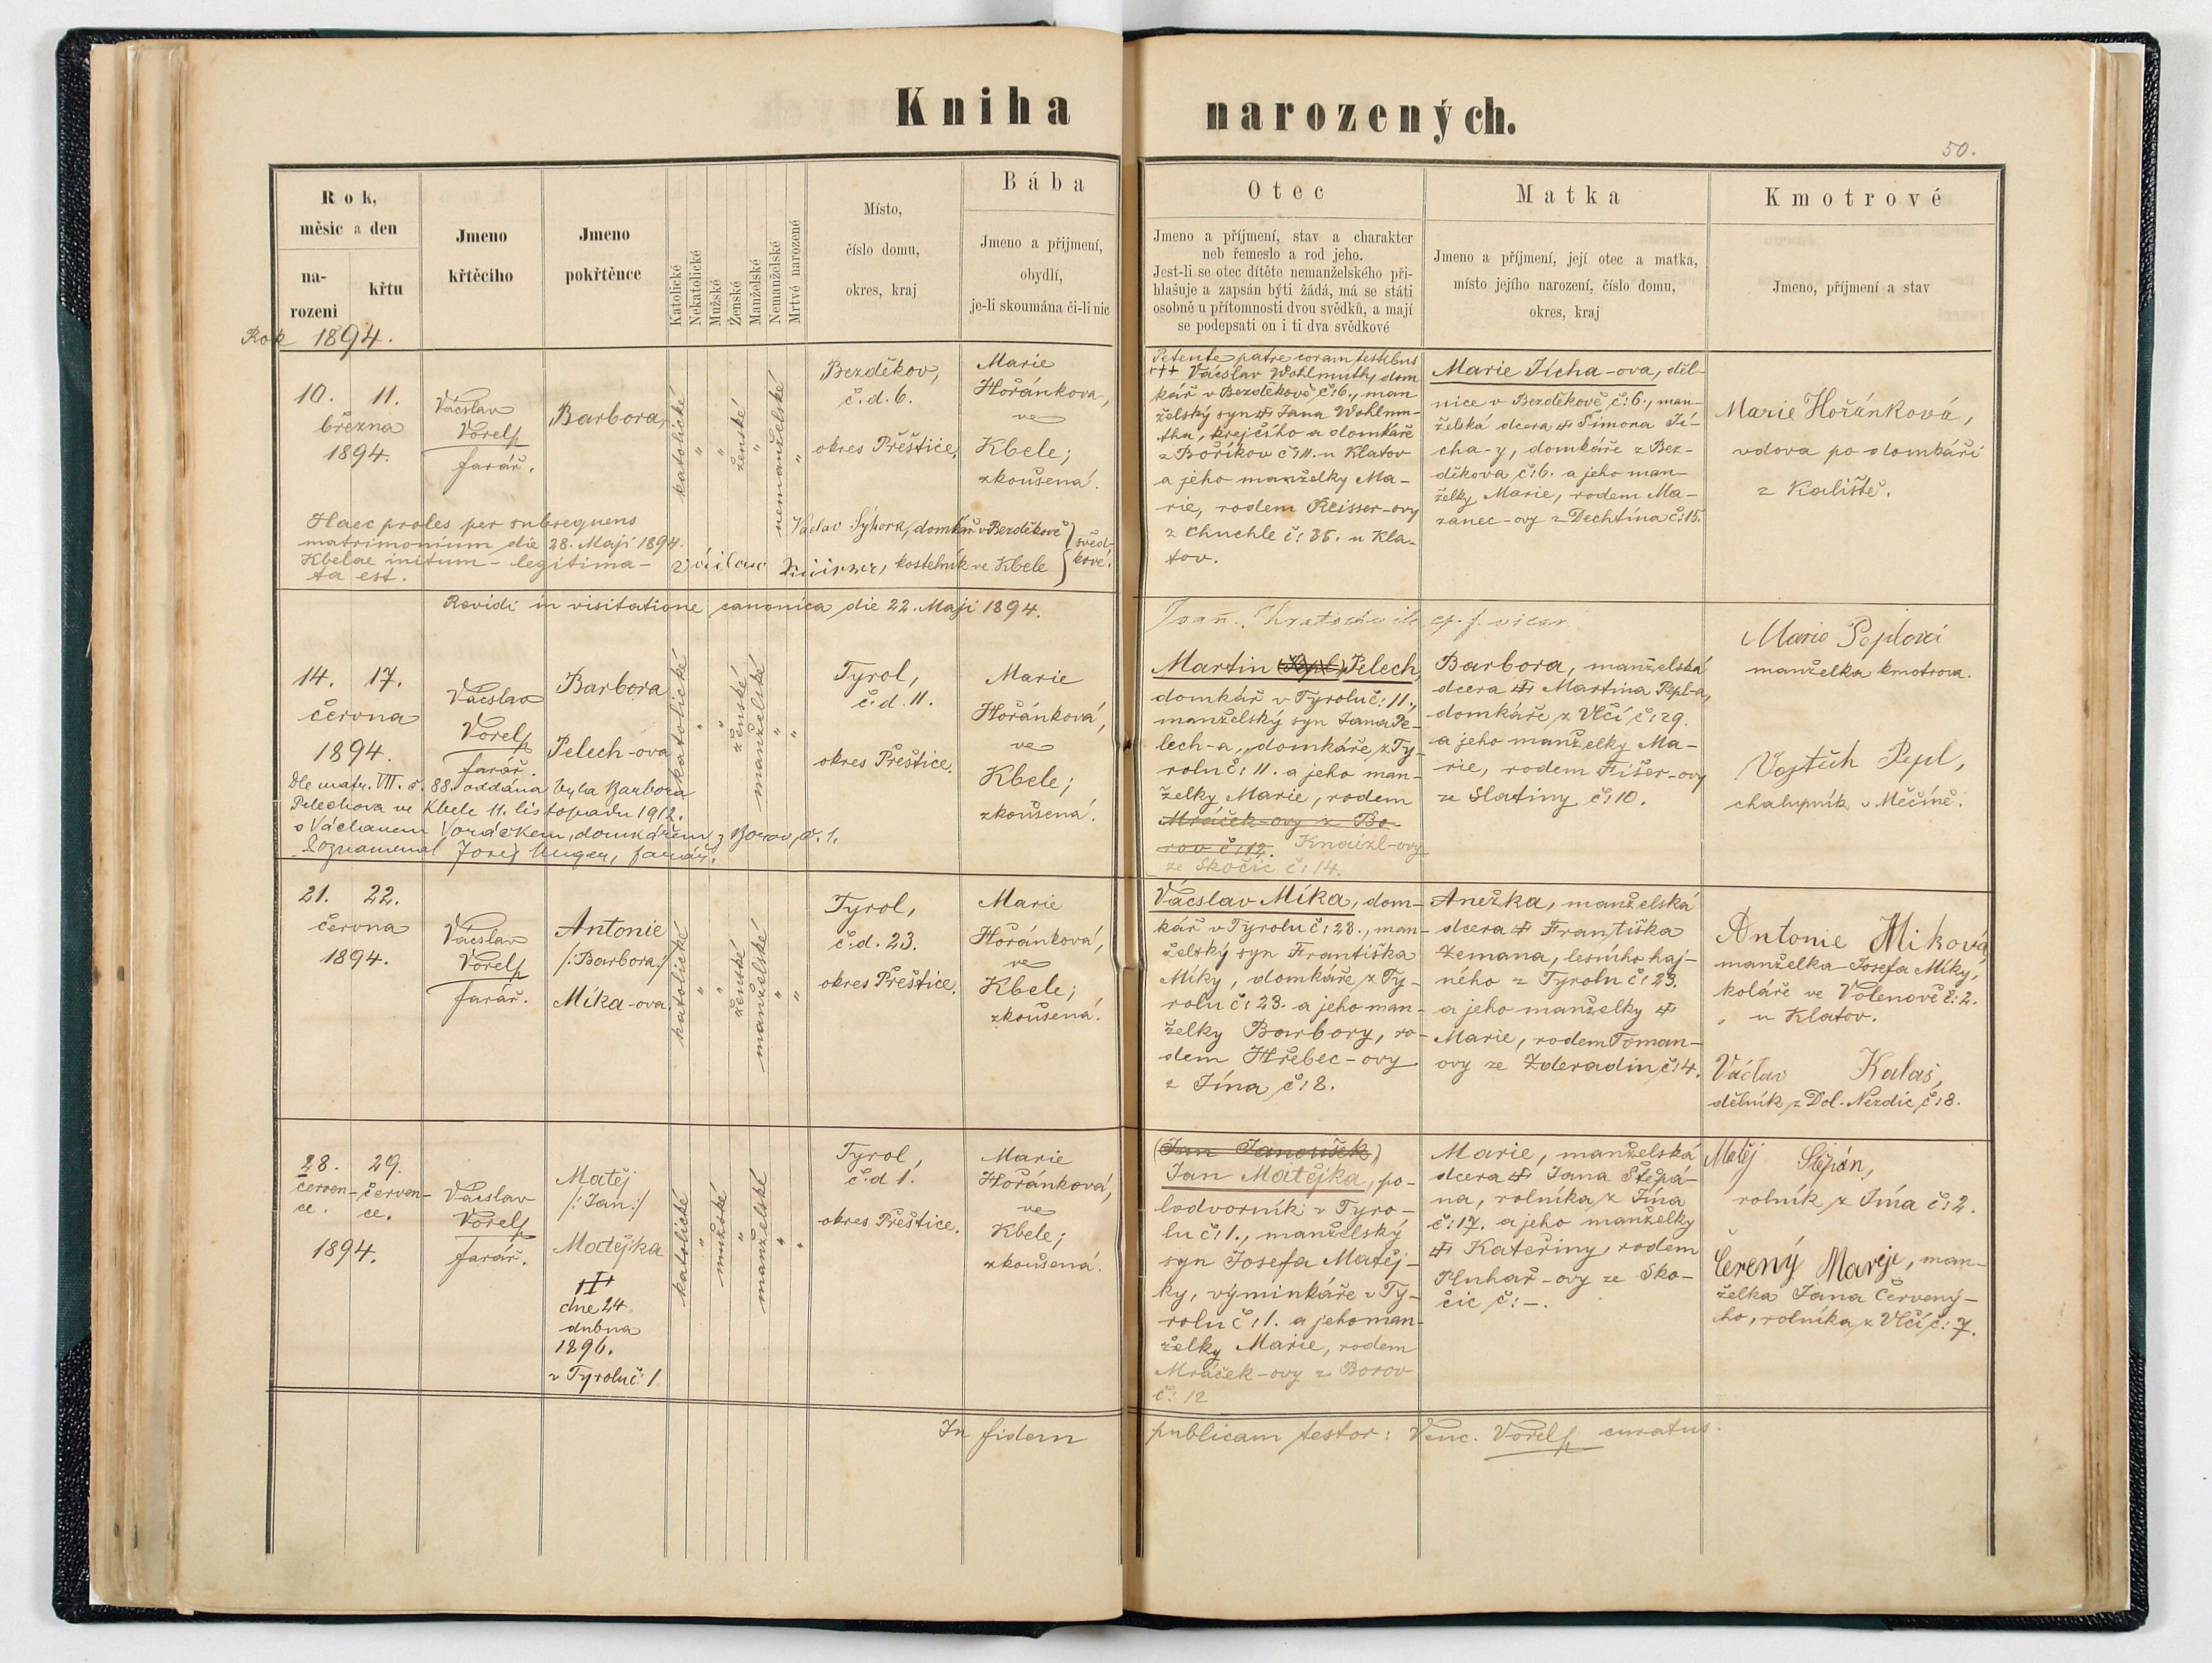 Kniha narozených.
50.
Rok,
měsíc a den
na-
rozeni
křtu
Jmeno
křtěciho
Jmeno
pokřtěnce
Katolické
Nekatolické
Mužské
Ženské
Manželské
Nemanželské
Mrtvé narozené
Místo,
číslo domu,
okres, kraj
Bába
Jmeno a přijmení,
obydlí,
je-li skoumána či-li nic
Otec
Jmeno a příjmení, stav a charakter
neb řemeslo a rod jeho.
Jest-li se otec dítěte nemanželského při-
hlašuje a zapsán býti žádá, má se státi
osobně u přítomnosti dvou svědků, a mají
se podepsati on i ti dva svědkové
Matka
Jmeno a příjmení, její otec a matka,
místo jejího narození, číslo domu,
okres, kraj
Kmotrové
Jmeno, příjmení a stav
Rok 1894.
10. 11.
března
1894.
Vácslav
Vorel
farář.
Barbora,
katolické
"
"
ženské
"
nemanželské
"
Bezděkov,
č. d. 6.
okres Přeštice.
Marie
Hořánkova,
ve
Kbele;
zkoušená.
Petente patre coram testibus
+++ Vácslav Wohlmuth, dom
kář v Bezděkově č: 6., man
želský syn Jana Wohlmu-
tha, krejčího a domkáře
z Boříkov č: 11. u Klatov
a jeho manželky Ma-
rie, rodem Reisser-ovy
z Chuchle č: 35. u Kla-
tov.
Marie Jícha-ova, děl-
nice v Bezděkově č: 6., man-
želská dcera Šimona Jí-
cha-y, domkáře z Bez-
děkova č: 6. a jeho man-
želky Marie, rodem Ma-
zanec-ovy z Dechtína č: 15.
Marie Hořánková,
vdova po domkáři
z Kaliště.
Haec proles per subsequens
matrimonium die 28. Maji 1894.
Kbelae initum - legitima-
ta est.
Václav Sýkora, domkář v Bezděkově
kostelník ve Kbele
svěd-
kové.
Revidi in visitatione canonica die 22. Maji 1894.
14. 17.
června
1894.
Vácslav
Vorel
farář.
Barbora
Pelech-ova
katolické
"
"
ženské
manželské
"
"
Tyrol,
č. d. 11.
okres Přeštice.
Marie
Hořánková,
ve
Kbele;
zkoušená.
Martin Pelech,
domkář v Tyrolu č: 11.,
manželský syn Jana Pe-
lech-a, domkáře z Ty-
rolu č: 11. a jeho man-
želky Marie, rodem
Mráček-ovy z Bo-
rov č: 12.
ze Skočic č: 14.
Barbora, manželská
dcera Martina Pepl-a,
domkáře z Vlčí č: 29.
a jeho manželky Ma-
rie, rodem Fišer-ovy
ze Slatiny č: 10.
Marie Peplová
manželka kmotrova.
Vojtěch Pepl,
chalupník v Měčíně.
Dle matr. VII. s. 88. oddána byla Barbora
Pelechova ve Kbele 11. listopadu 1912.
s Václavem Voráčkem, domkářem z Borov, č. 1.
Poznamenal Josef Unger, farář.
21. 22.
června
1894.
Vácslav
Vorel
farář.
Antonie
/: Barbora :/
Míka-ova.
katolické
"
"
ženské
manželské
"
"
Tyrol,
č. d. 23.
okres Přeštice.
Marie
Hořánková,
ve
Kbele;
zkoušená.
Vácslav Míka, dom-
kář v Tyrolu č: 23., man-
želský syn Františka
Míky, domkáře z Ty-
rolu č: 23. a jeho man-
želky Barbory, ro-
dem Hřebec-ovy
z Jína č: 8.
Anežka, manželská
dcera Františka
Zemana, lesního haj-
ného z Tyrolu č: 23.
a jeho manželky
Marie, rodem Toman-
ovy ze Zderadin č: 4.
Antonie Miková
manželka Josefa Míky,
koláře ve Volenově č: 2.
u Klatov.
Václav Kalaš,
dělník z Dol. Nezdic č: 8.
28. 29.
červen- červen-
ce. ce.
1894.
Vácslav
Vorel
farář.
Matěj
/: Jan :/
Matějka
dne 24.
dubna
1896.
v Tyrolu č: 1.
katolické
"
mužské
"
manželské
"
"
Tyrol,
č. d. 1.
okres Přeštice.
Marie
Hořánková,
ve
Kbele;
zkoušená.
(Jan Janoušek,)
Jan Matějka, po-
lodvorník v Tyro-
lu č: 1., manželský
syn Josefa Matěj-
ky, výminkáře v Ty-
rolu č: 1. a jeho man-
želky Marie, rodem
Mráček-ovy z Borov
č: 12
Marie, manželská
dcera Jana Štěpá-
na, rolníka z Jína
č: 17. a jeho manželky
Kateřiny, rodem
Pluhař-ovy ze Sko-
čic č: -.
Matěj Štěpán,
rolník z Jína č: 2.
Čerený Mareje, man-
želka Jana Červený-
ho, rolníka z Vlčí č: 7.
In fidem publicam testor: Venc. Vorel curatus.